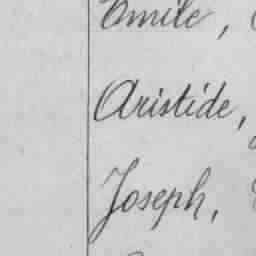 Emile,
Aristide,
Joseph,